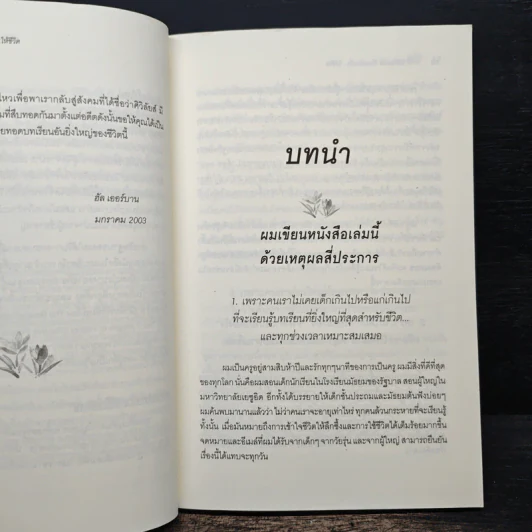 ให้ชีวิต
ไหวเพื่อพาเรากลับสู่สังคมที่ได้ชื่อว่าศิวิลัยส์ มี
มที่สืบทอดกันมาตั้งแต่อดีตดังนั้นขอให้คุณได้เป็น
ยทอดบทเรียนอันยิ่งใหญ่ของชีวิตนี้
ฮัล เออร์บาน
มกราคม 2003
บทนำ
ผมเขียนหนังสือเล่มนี้
ด้วยเหตุผลสี่ประการ
1. เพราะคนเราไม่เคยเด็กเกินไปหรือแก่เกินไป
ที่จะเรียนรู้บทเรียนที่ยิ่งใหญ่ที่สุดสำหรับชีวิต...
และทุกช่วงเวลาเหมาะสมเสมอ
ผมเป็นครูอยู่สามสิบห้าปีและรักทุกๆนาทีของการเป็นครู ผมมีสิ่งที่ดีที่สุด
ของทุกโลก นั่นคือผมสอนเด็กนักเรียนในโรงเรียนมัธยมของรัฐบาล สอนผู้ใหญ่ใน
มหาวิทยาลัยเยซูอิต อีกทั้งได้บรรยายให้เด็กชั้นประถมและมัธยมต้นฟังบ่อยๆ
ผมค้นพบมานานแล้วว่า ไม่ว่าคนเราจะอายุเท่าไหร่ ทุกคนล้วนกระหายที่จะเรียนรู้
ทั้งนั้น เมื่อมันหมายถึงการเข้าใจชีวิตให้ลึกซึ้งและการใช้ชีวิตได้เต็มร้อยมากขึ้น
จดหมายและอีเมล์ที่ผมได้รับจากเด็กๆ จากวัยรุ่น และจากผู้ใหญ่ สามารถยืนยัน
เรื่องนี้ได้แทบจะทุกวัน